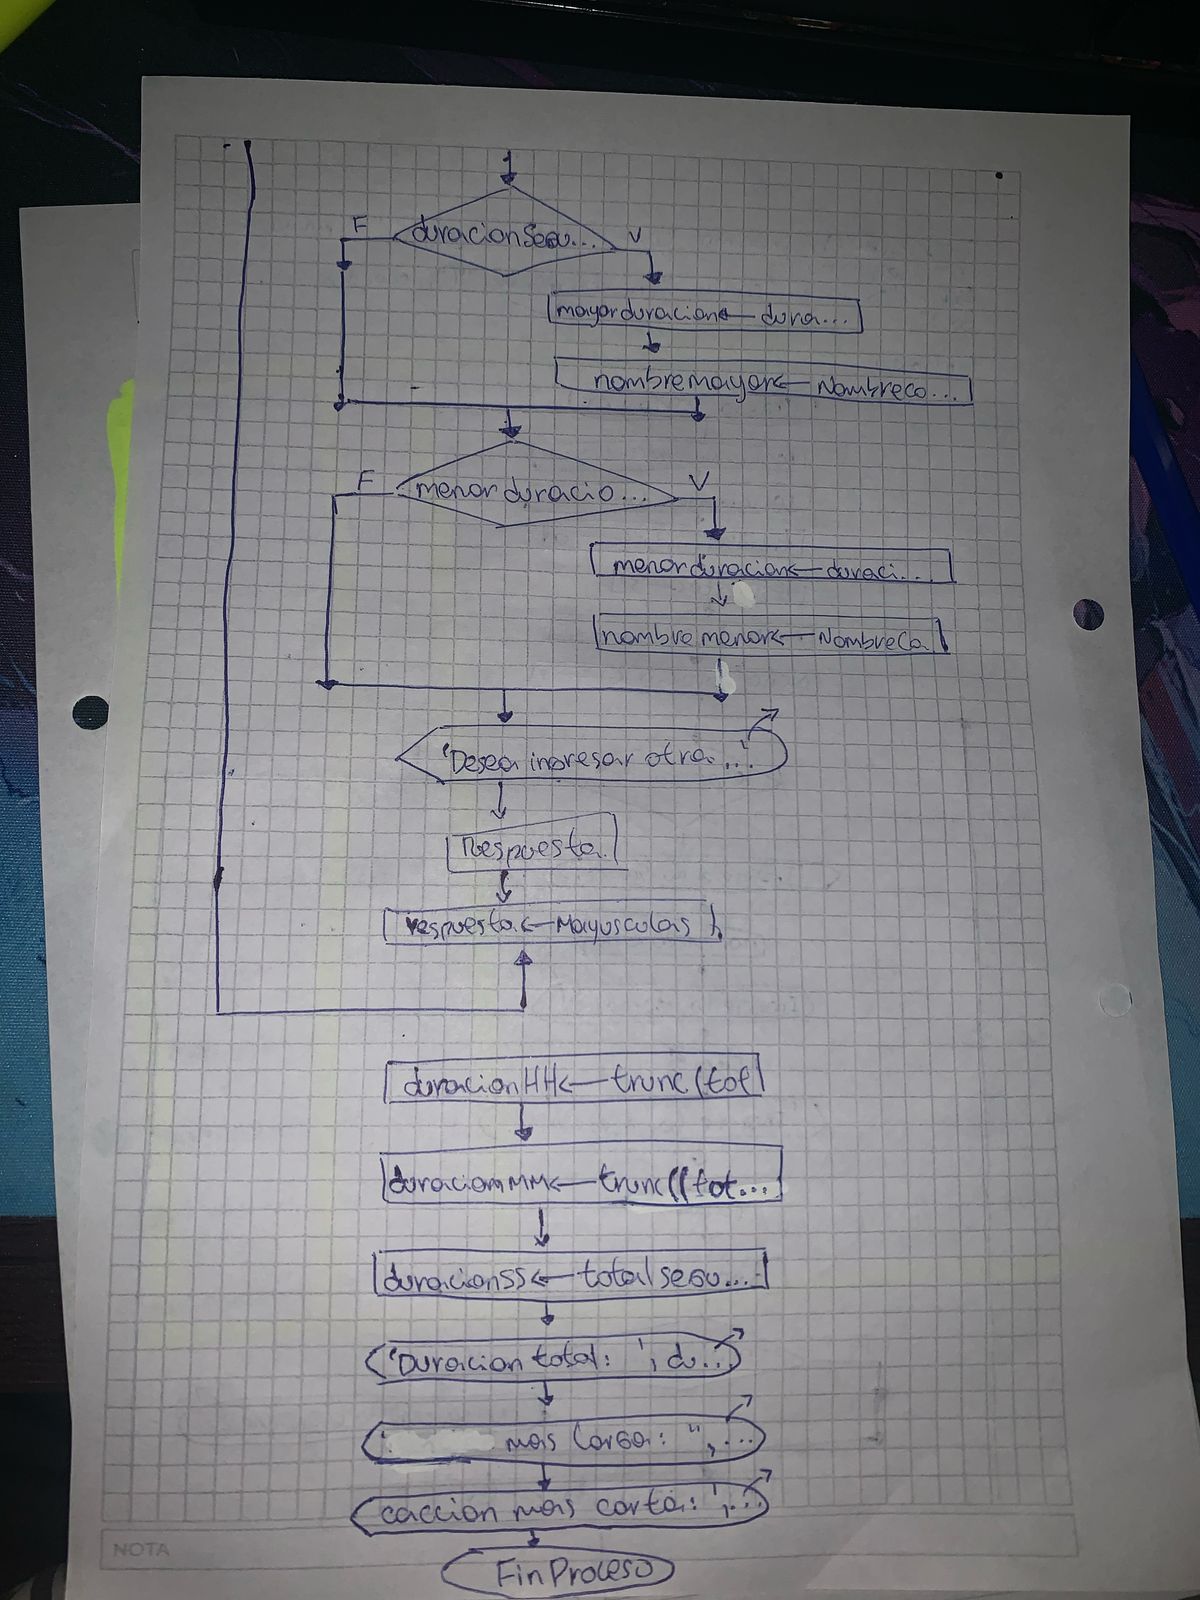 F duracionSegu... V
mayorduracion← dura...
nombremayor← Nombreco...
F menorduracio... V
menorduracion← duraci...
nombre menor← NombreCa
'Desea ingresar otra...'
Respuesta
respuesta← Mayusculas
duracionHH← trunc(tot
duracionMM← trunc((tot...
duracionSS← totalsegu...
'Duracion total: ', du...
mas larga: ",...
caccion mas corta: ',...
FinProceso
NOTA